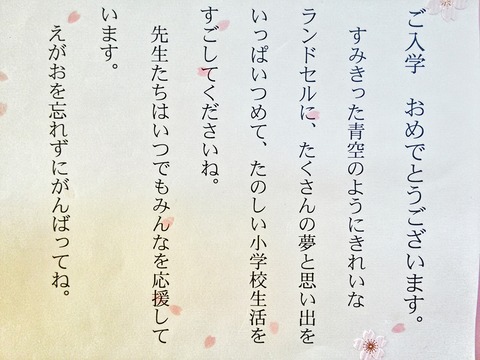 ご入学　おめでとうございます。
すみきった青空のようにきれいな
ランドセルに、たくさんの夢と思い出を
いっぱいつめて、たのしい小学校生活を
すごしてくださいね。
先生たちはいつでもみんなを応援して
います。
えがおを忘れずにがんばってね。